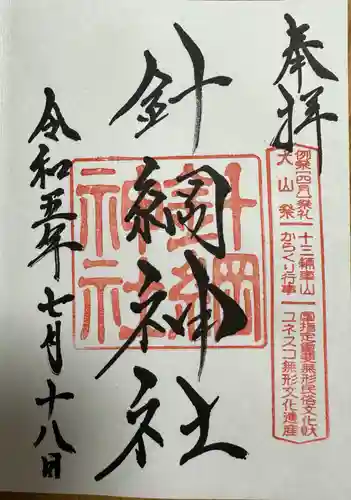 奉拝
例祭(四月)祭礼
犬山祭
十三輌車山
からくり行事
国指定重要無形民俗文化財
ユネスコ無形文化遺産
針綱神社
針綱
神社
令和五年七月十八日